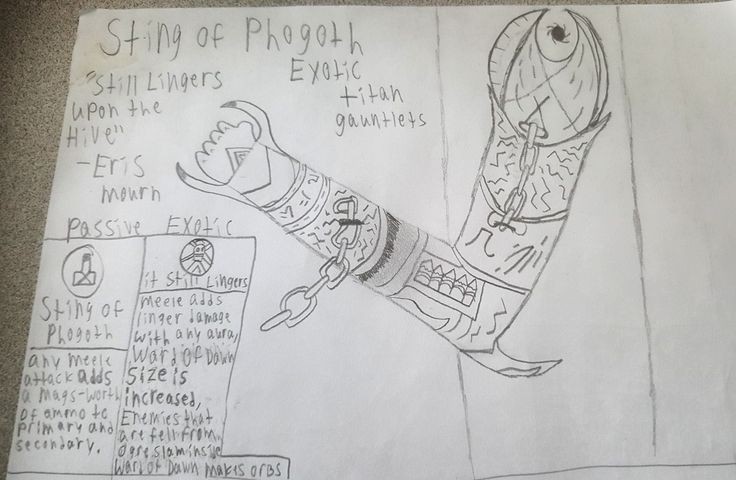 Sting of Phogoth
Exotic
titan
gauntlets
"Still Lingers
upon the
Hive"
-Eris
mourn
Passive Exotic
Sting of
Phogoth
any meele
attack adds
a mags-worth
of ammo to
primary and
secondary.
it Still Lingers
meele adds
linger damage
with any aura,
Ward of Dawn
Size is
increased,
Enemies that
are fell from
Ogre slam inside
Ward of Dawn makes orbs